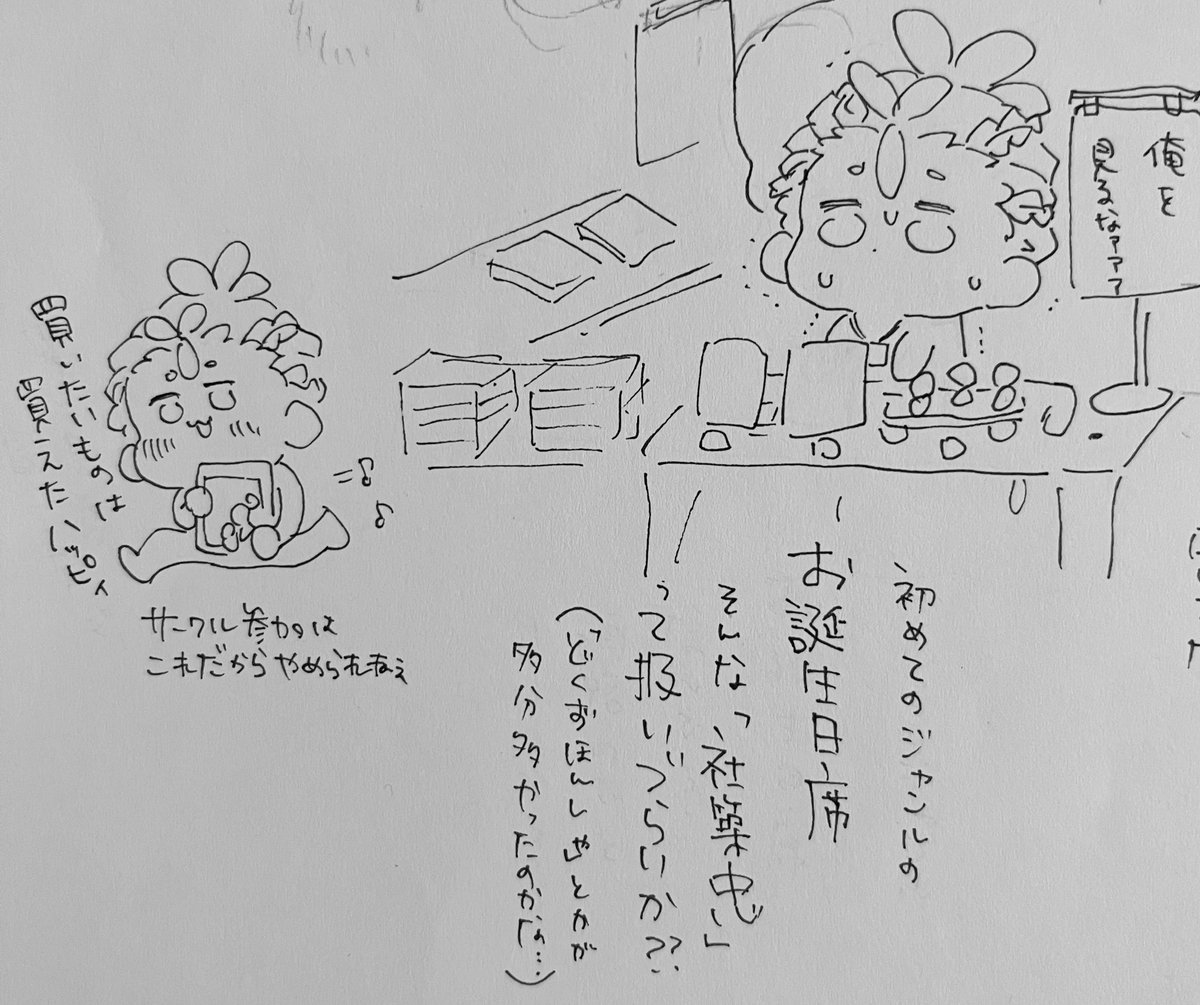 俺を
見るなァァァ
初めてのジャンルの
お誕生日席
そんな「社築忠」
って扱いづらいか??
(「どくずほんしゃ」とかが
多分多かったのかな…)
買いたいものは
買えたハッピィ
サークル参加は
これだからやめられねぇ